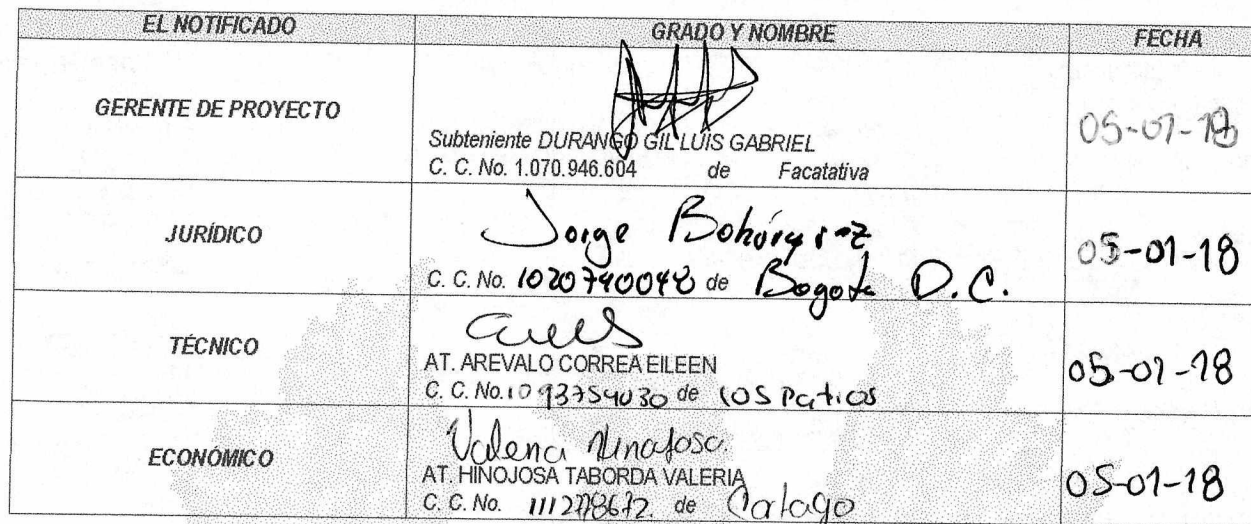 EL NOTIFICADO GRADO Y NOMBRE FECHA
GERENTE DE PROYECTO
Subteniente DURANGO GIL LUIS GABRIEL
C. C. No. 1.070.946.604 de Facatativa
05-01-18
JURÍDICO
Jorge Bohórquez
C. C. No. 1020740048 de Bogota D.C.
05-01-18
TÉCNICO
AT. AREVALO CORREA EILEEN
C. C. No. 1093754030 de los Patios
05-01-18
ECONÓMICO
Valeria Hinojosa.
AT. HINOJOSA TABORDA VALERIA
C. C. No. de Cartago
05-01-18